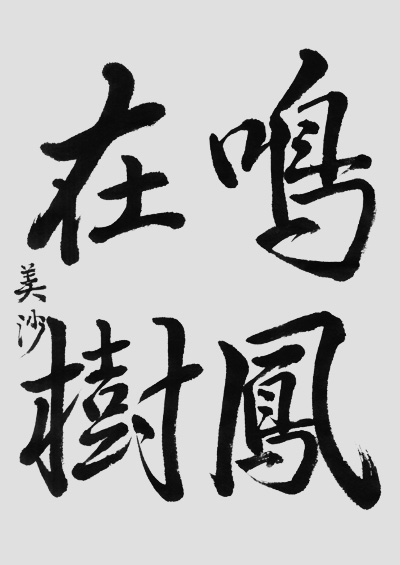 鳴鳳
在樹
美沙